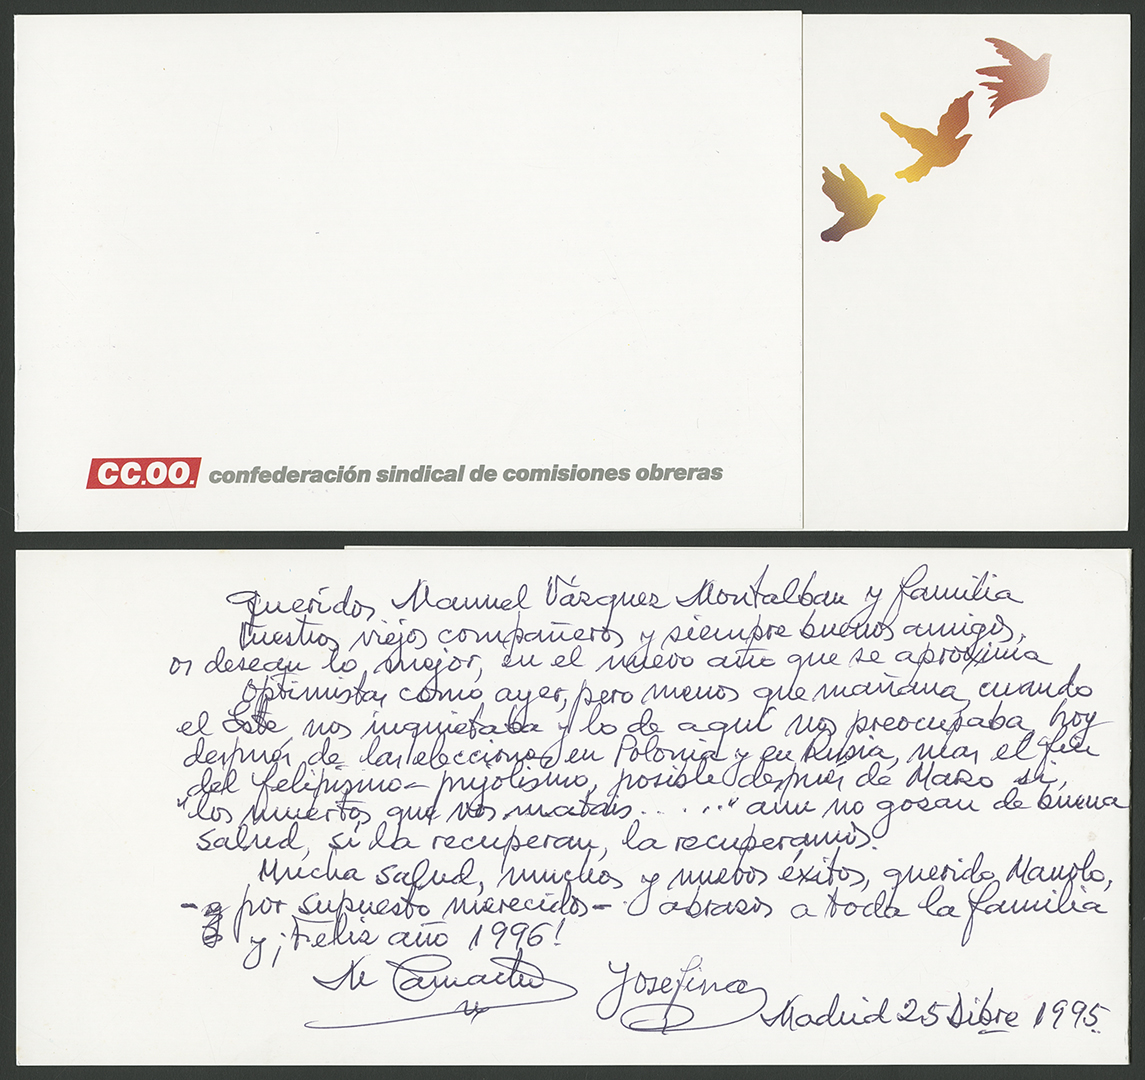 CC.OO. confederación sindical de comisiones obreras
Queridos Manuel Vázquez Montalban y familia
Vuestros viejos compañeros y siempre buenos amigos,
os desean lo mejor, en el nuevo año que se aproxima
Optimistas como ayer, pero menos que mañana, cuando
el Este nos inquietaba y lo de aquí nos preocupaba, hoy
después de las elecciones en Polonia y en Rusia, mas el fin
del felipismo - pujolismo, posible después de Marzo si,
"los muertos que vos matais... ..." aun no gosan de buena
salud, si la recuperan, la recuperamos.
Mucha salud, muchos y nuevos éxitos, querido Manolo,
- por supuesto merecidos - abrazos a toda la familia
y ¡Feliz año 1996!
M Camacho Josefina
Madrid 25 Dibre 1995